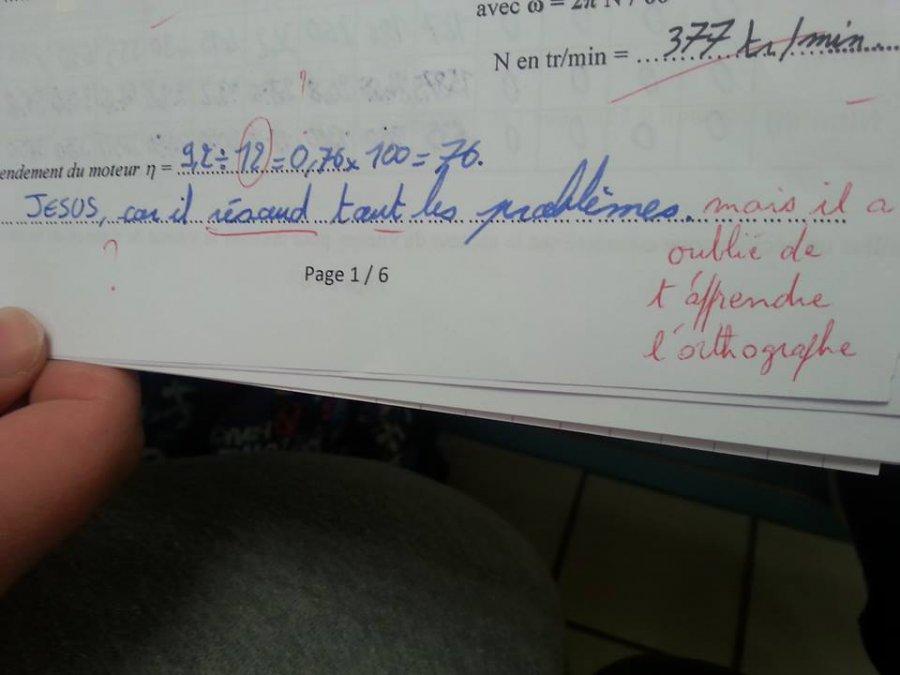 avec ω = 2π N / 60
N en tr/min = 377 tr/min
?
endement du moteur η = 92 ÷ 12 = 0,76 x 100 = 76.
JESUS, car il résoud tout les problèmes. mais il a
oublié de
?
Page 1 / 6
t'apprendre
l'orthographe